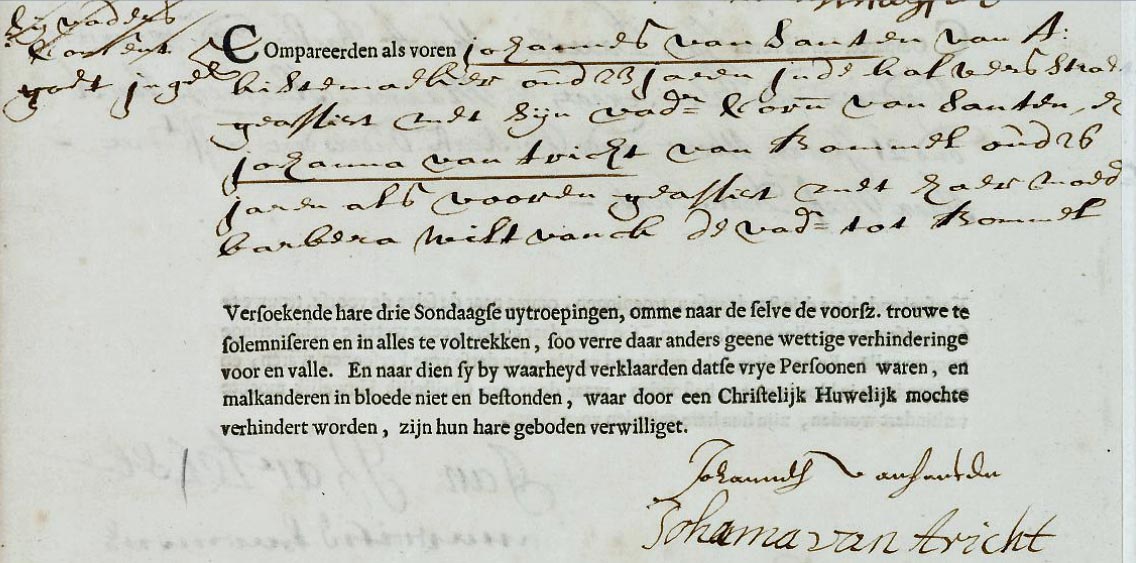 haer vaders
Consent
goet ingel
COmpareerden als voren johannes van Santen van A:
kistemaker oud 23 jaren in de halversstraet
geassist met sijn vadr Corn van Santen, &
johanna van tricht van Bommel oud 26
jaren als vooren geassist met haer moedr
barbera wiltvanck de vadr tot Bommel
Verſoekende hare drie Sondaagſe uytroepingen, omme naar de ſelve de voorſz. trouwe te
ſolemniſeren en in alles te voltrekken, ſoo verre daar anders geene wettige verhinderinge
voor en valle. En naar dien ſy by waarheyd verklaarden datſe vrye Perſoonen waren, en
malkanderen in bloede niet en beſtonden, waar door een Chriſtelijk Huwelijk mochte
verhindert worden, zijn hun hare geboden verwilliget.
Johannes vansanten
Johanna van tricht